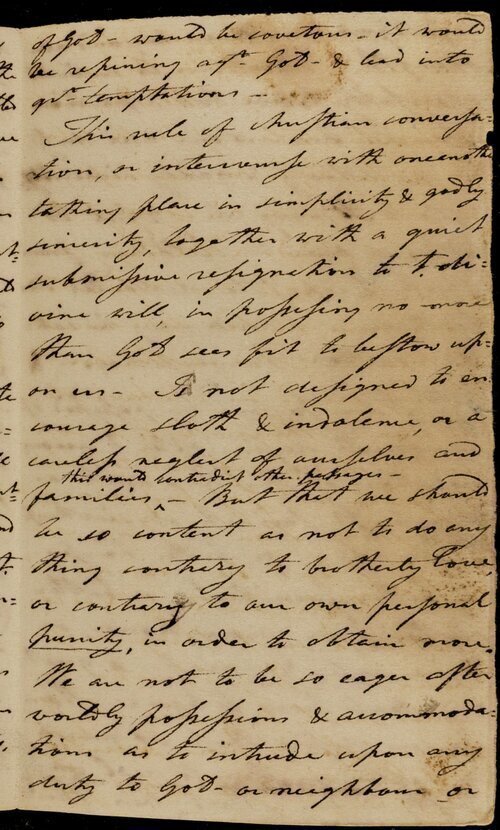 of God - would be covetous - it would
be repining agst. God - & lead into
grt. temptations -
This rule of christian conversa=
tion, or intercourse with one another
taking place in simplicity & godly
sincerity, together with a quiet
submissive resignation to t. di=
vine will, in possessing no more
than God sees fit to bestow up=
on us - Is not designed to en
courage sloth & indolence, or a
careless neglect of ourselves and
this would contradict other passages -
families, - But that we should
be so content as not to do any
thing contrary to brotherly love,
or contrary to our own personal
purity, in order to obtain more.
We are not to be so eager after
worldly possessions & accommoda=
tions as to intrude upon any
duty to God - or neighbour - or